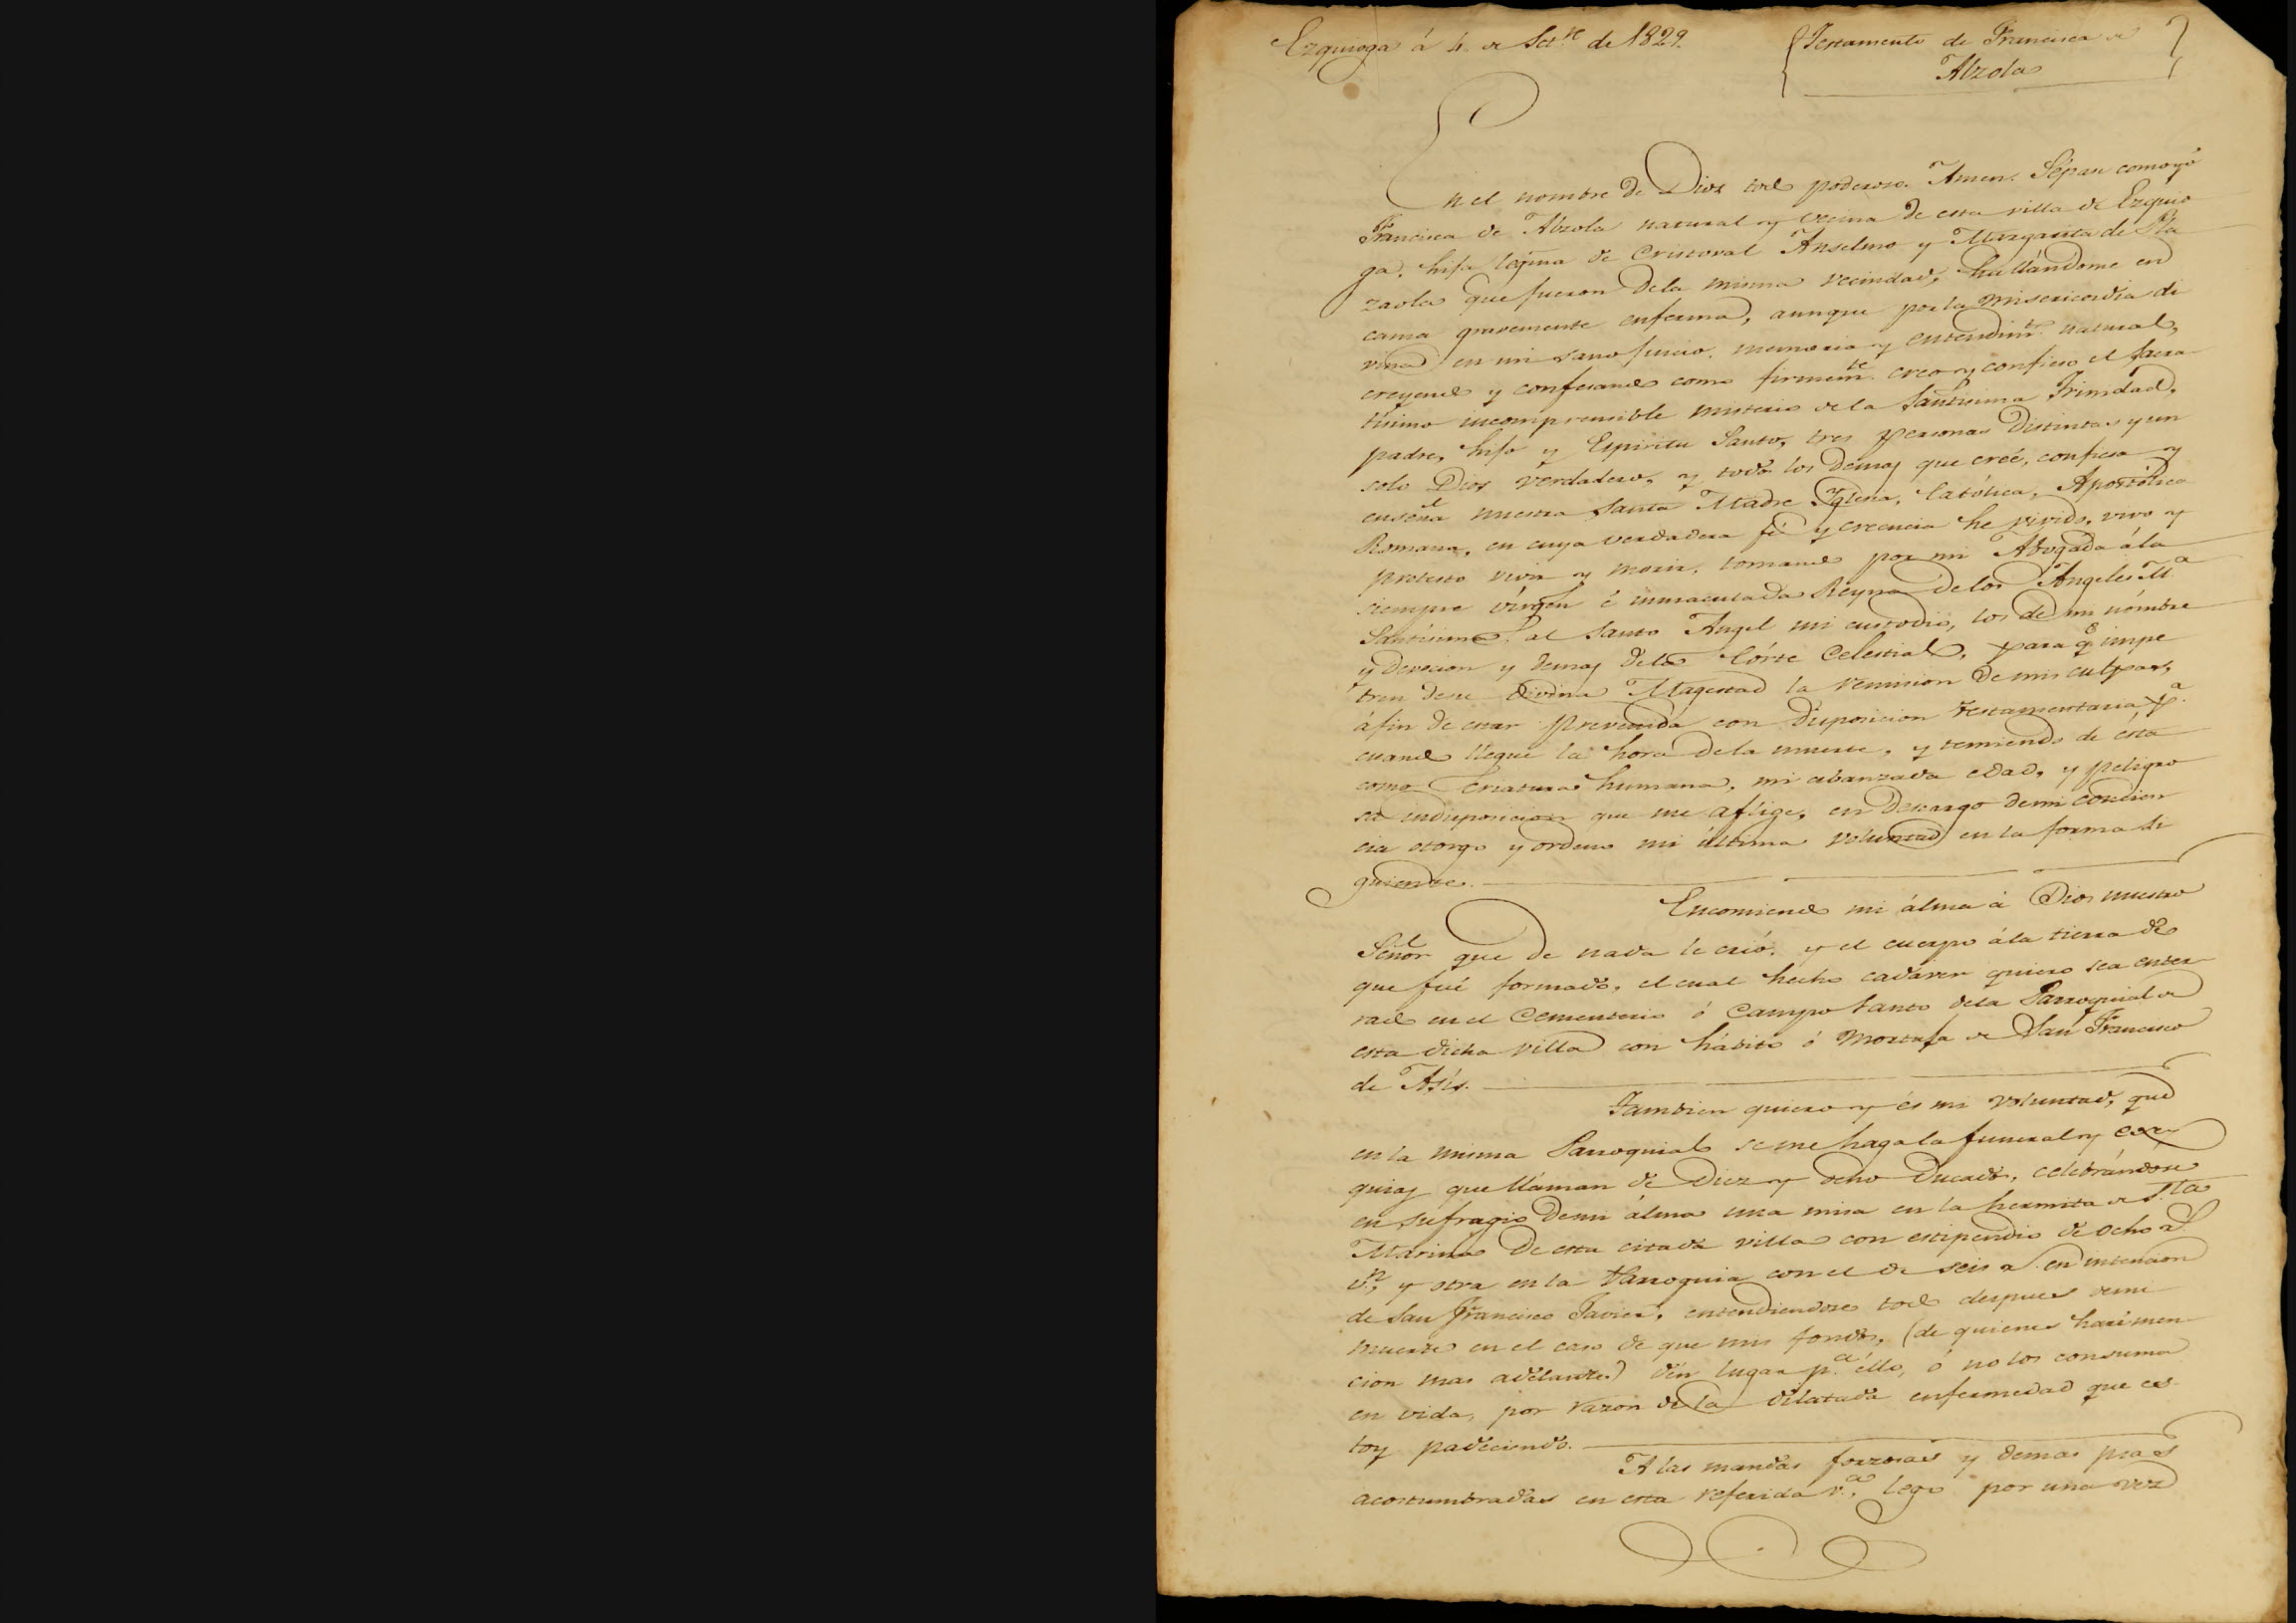 Ezquioga á 4 de Set.re de 1829.
Testamento de Francisca de
Alzola
En el nombre de Dios todo poderoso. Amen. Sépan como yó
Francisca de Alzola natural y vecina de esta villa de Ezquio
ga, hija legma de Cristoval Anselmo y Margarita de Pla
zaola que fueron dela misma vecindad, hallándome en
cama gravemente enferma, aunque por la misericordia di
vina en mi sano juicio, memoria y entendimto natural,
creyendo y confesando como firmemte creo y confieso el sacra
tisimo incomprensible misterio de la Santisima Trinidad,
padre, hijo y Espiritu Santo, tres personas distintas y un
solo Dios verdadero, y todos los demas que creé, confiesa y
enseña nuestra Santa Madre Yglesia, Católica, Apostólica
Romana, en cuya verdadera fé y creencia he vivido, vivo y
protesto vivir y morir, tomando por mi Abogada á la
siempre vírgen é inmaculada Reyna delos Angeles M.a
Santísima, al Santo Angel mi custodio, los de mi nómbre
y devocion y demas dela Córte Celestial, para q.e impe
tren de su divina Magestad la remision de mis culpas,
áfin de estar prevenida con disposicion testamentaria p.a
cuando llegue la hora dela muerte, y temiendo de ésta
como criatura humana, mi abanzada edad, y peligro
sa indisposicion que me aflige, en descargo demi concien
cia otorgo y ordeno mi última voluntad en la forma si
guiente.
Encomiendo mi álma á Dios nuestro
Señor que de nada le crió, y el cuerpo ála tierra de
que fué formado, el cual hecho cadáver quiero sea enter
rado en el Cementerio ó Campo Santo dela Parroquial de
esta dicha villa con hábito ó mortaja de San Francisco
de Asís.
Tambien quiero y és mi voluntad, que
en la misma Parroquial se me haga la funeral y exe
quias que lláman de Diez y ocho Ducados, celebrándose
en sufragio demi álma una misa en la hermita de S.ta
Marina de esta citada villa con estipendio de ocho r.s
v.n, y otra en la Parroquia con el de seis r.s en intencion
de San Francisco Javier, entendiendose todo despues demi
muerte en el caso de que mis fondos, (de quienes haré men
cion mas adelante) dén lugar p.a éllo, ó no los consuma
en vida, por razon de la dilatada enfermedad que es
toy padeciendo.
A las mandas forzosas y demas pias
acostumbradas en esta referida v.a lego por una vez